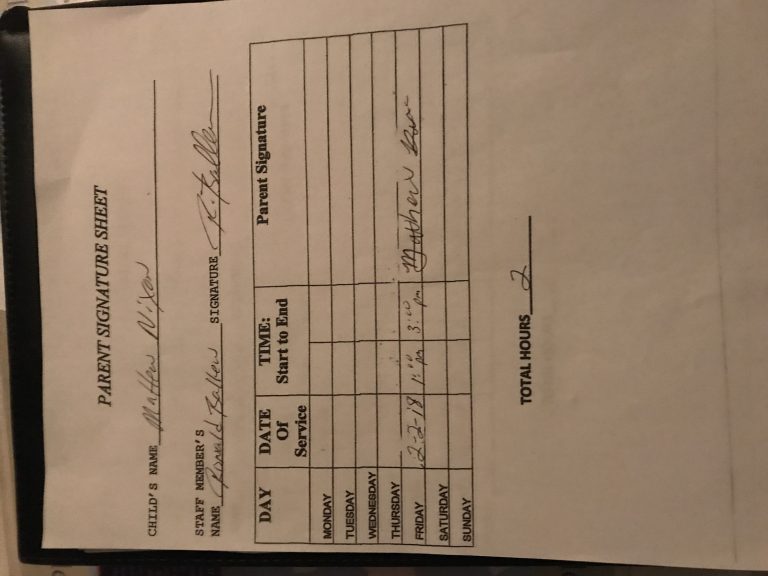 PARENT SIGNATURE SHEET
CHILD'S NAME Mathew Nixon
STAFF MEMBER'S
NAME Ronald Ballew SIGNATURE R. Ballew
DAY DATE Of Service TIME: Start to End Parent Signature
MONDAY
TUESDAY
WEDNESDAY
THURSDAY
FRIDAY 2-2-18 1:00 pm 3:00 pm Mathew
SATURDAY
SUNDAY
TOTAL HOURS 2